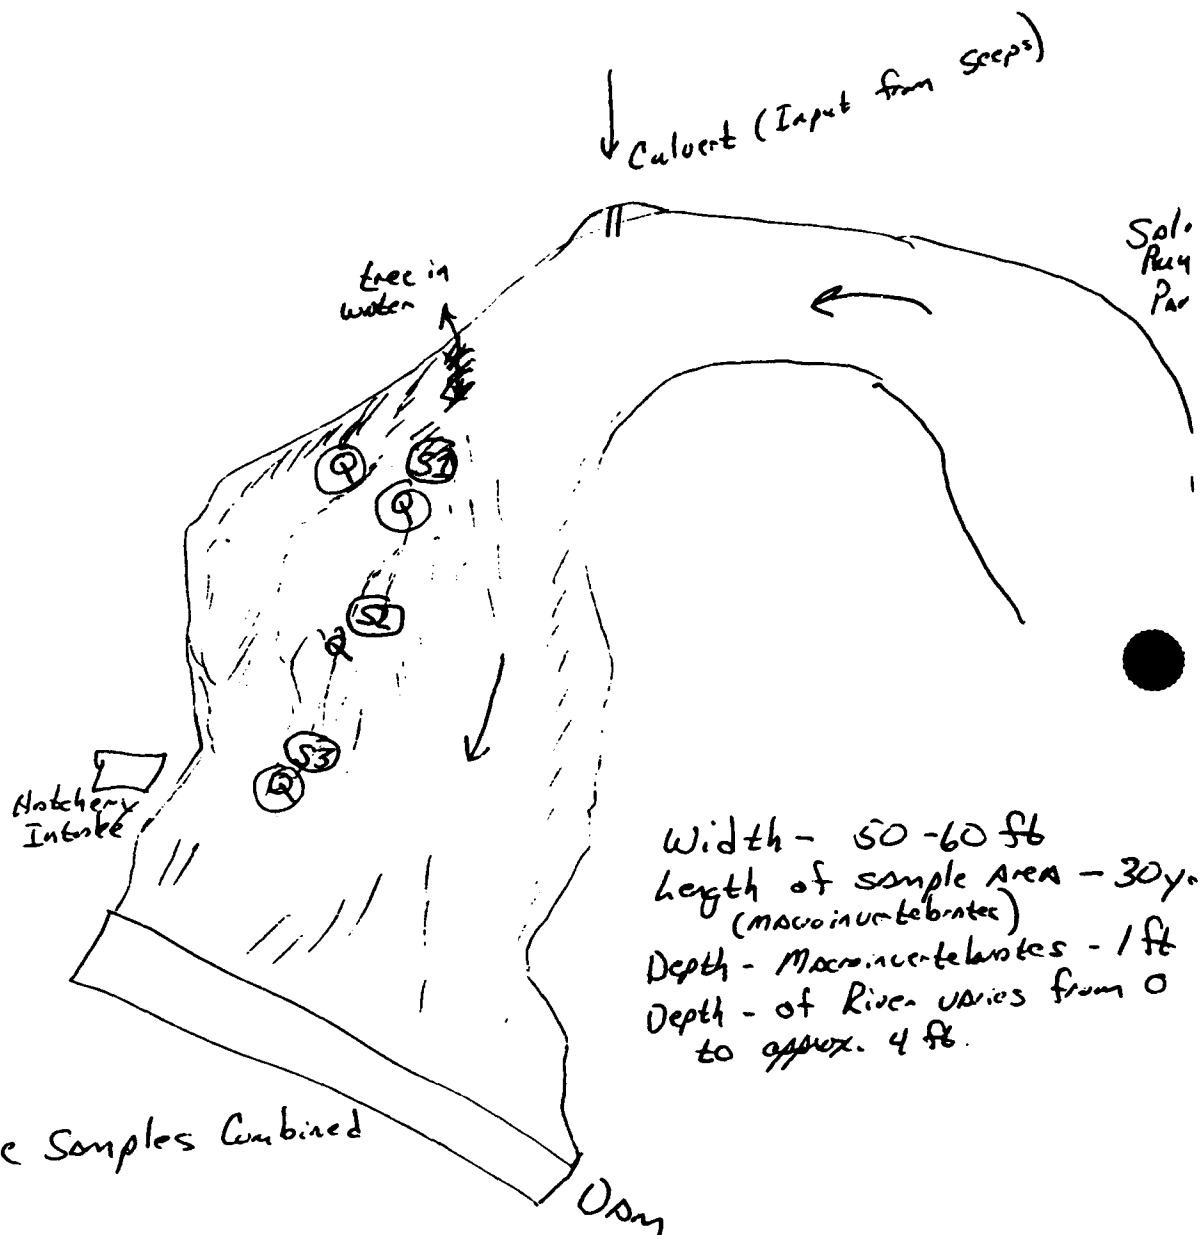 Culvert (Input from Seeps)
tree in
water
Q
S1
Q
S2
Q
S3
Q
Hatchery
Intake
Width - 50-60 ft
Length of sample area - 30
(macroinvertebrates)
Depth - Macroinvertebrates - 1 ft
Depth - of River varies from 0
to approx. 4 ft.
Samples Combined
Dam